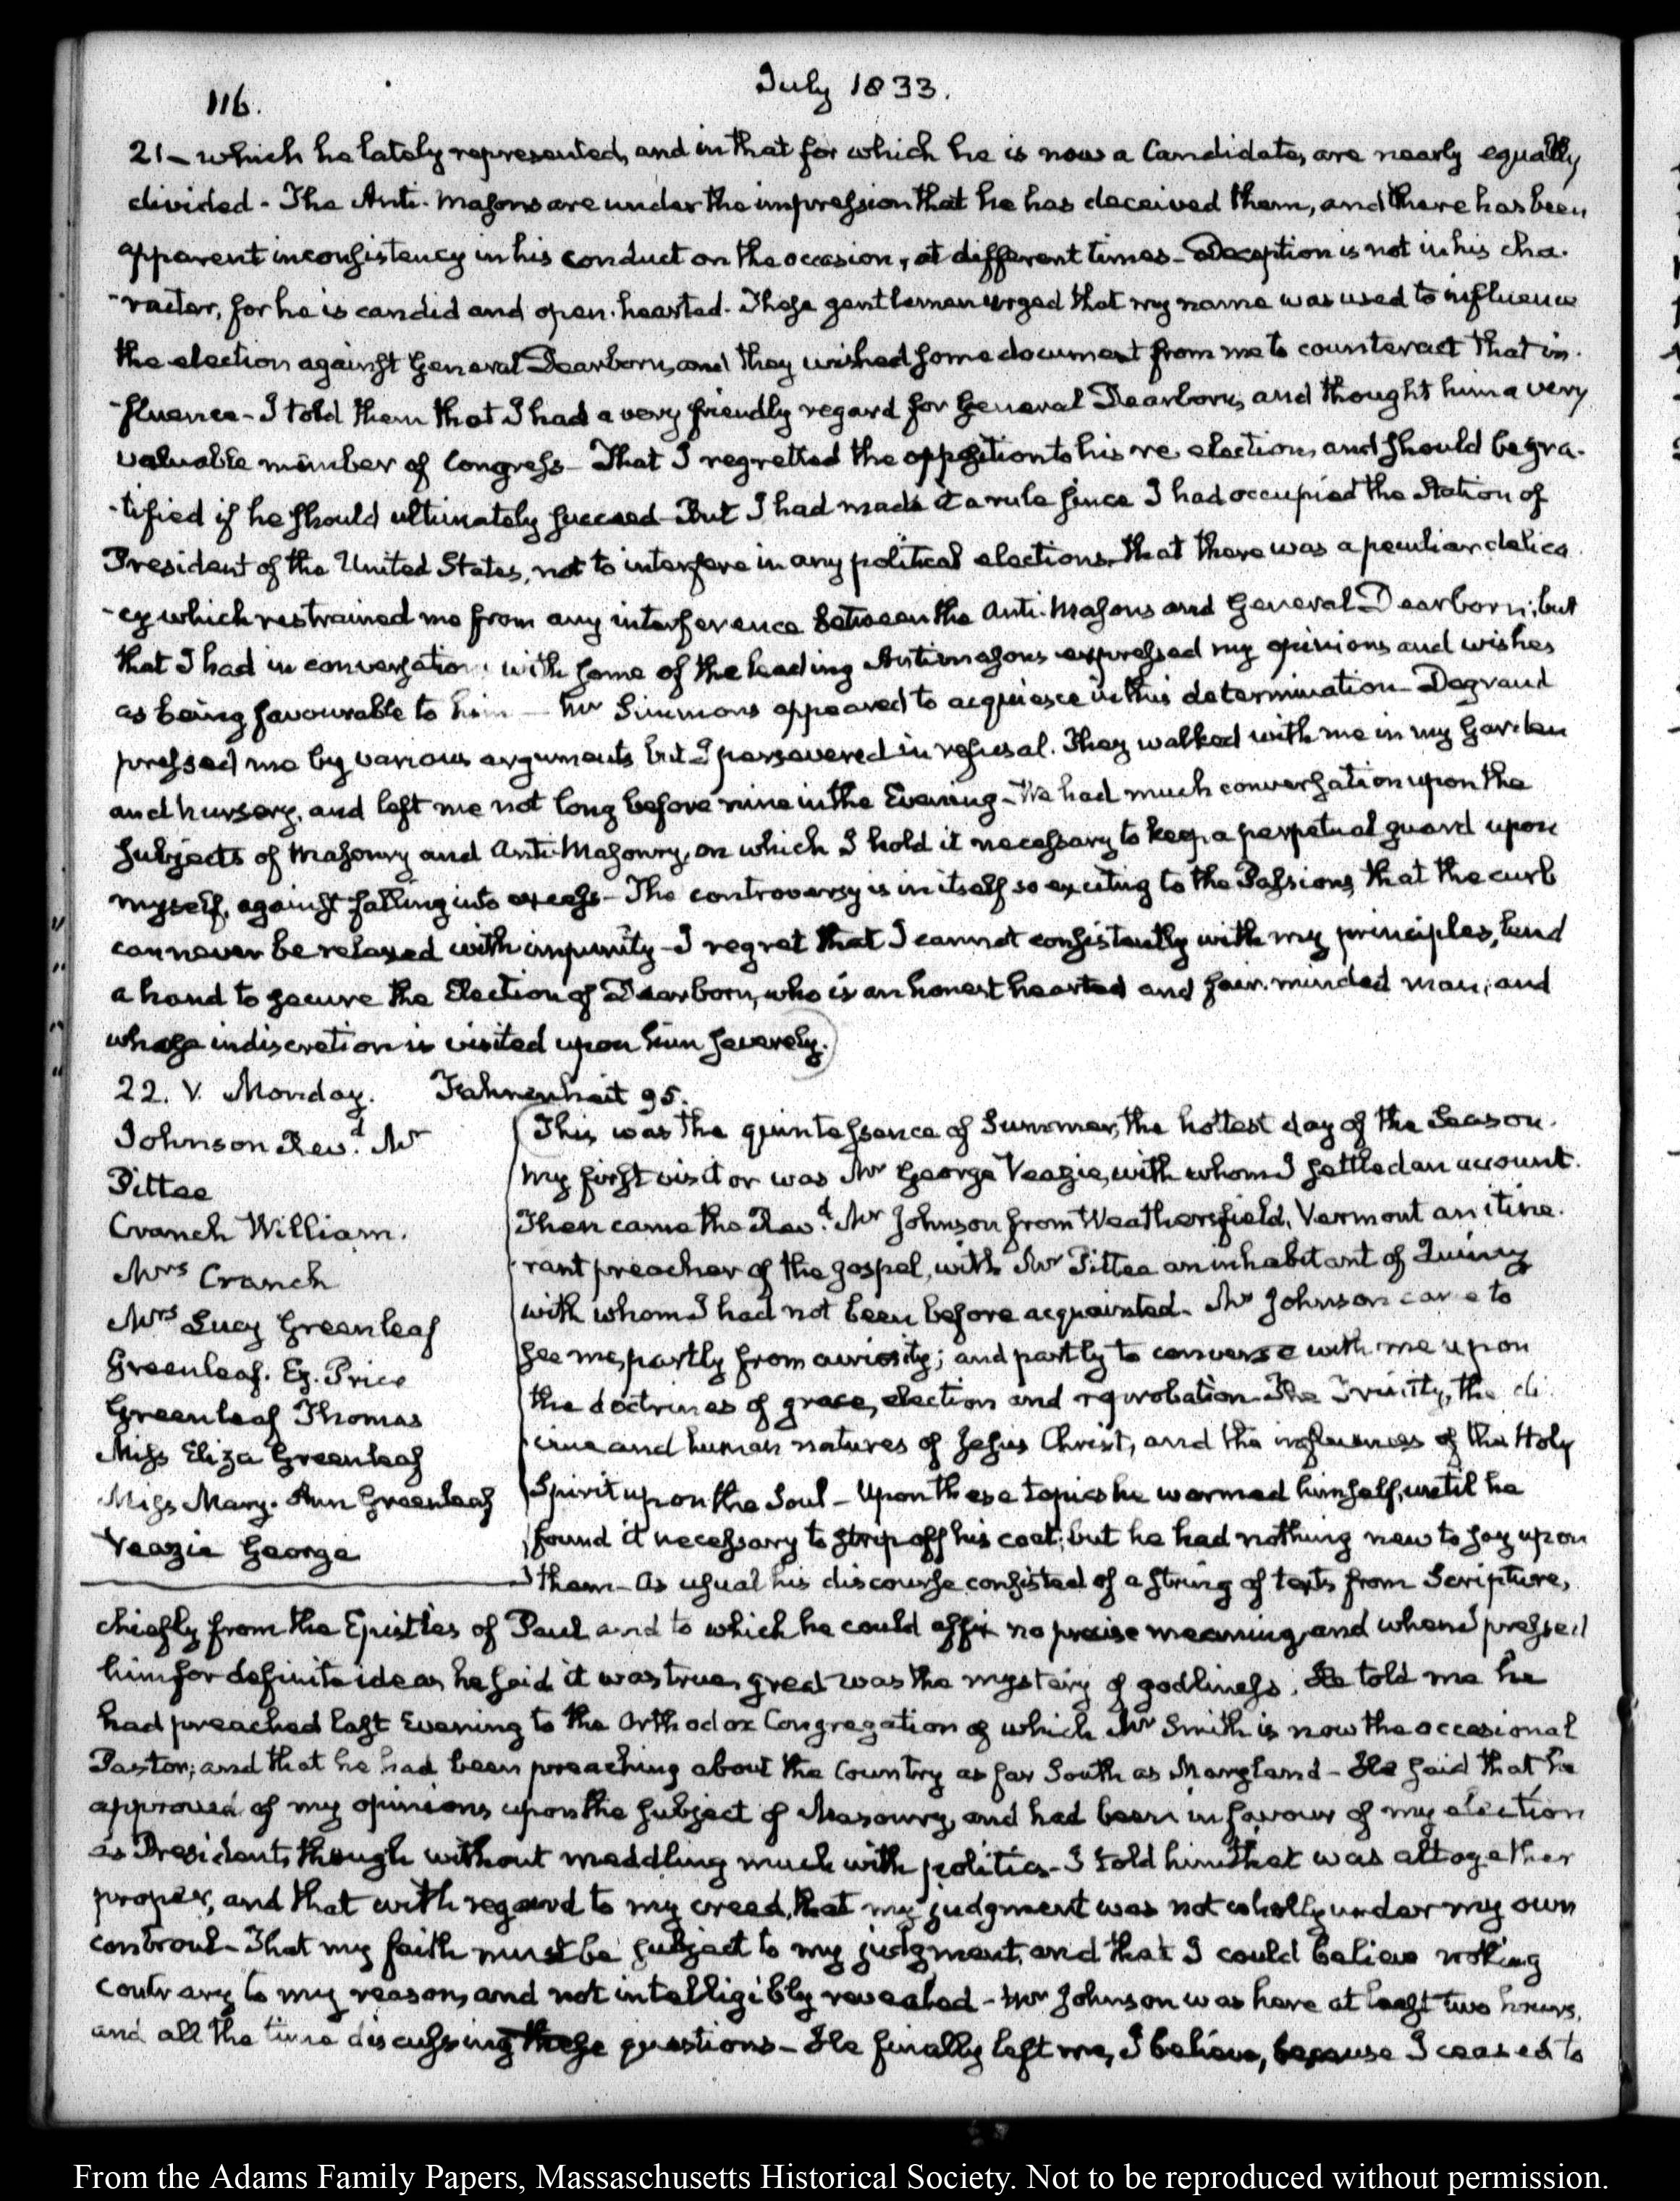 116.
July 1833.
21 – which he lately represented, and in that for which he is now a Candidate, are nearly equally
divided – The Anti-Masons are under the impression that he has deceived them, and there has been
apparent inconsistency in his conduct on the occasion, at different times – Deception is not in his cha-
-racter, for he is candid and open-hearted. These gentlemen urged that my name was used to influence
the election against General Dearborn, and they wished some document from me to counteract that in-
-fluence – I told them that I had a very friendly regard for General Dearborn, and thought him a very
valuable member of Congress – That I regretted the opposition to his re election, and should be gra-
-tified if he should ultimately succeed – But I had made it a rule since I had occupied the Station of
President of the United States, not to interfere in any political elections. That there was a peculiar delica-
-cy which restrained me from any interference between the Anti-Masons and General Dearborn; but
that I had in conversation with some of the leading Antimasons expressed my opinions and wishes
as being favourable to him – Mr Simmons appeared to acquiesce in this determination – Degrand
pressed me by various arguments but I persevered in refusal. They walked with me in my Garden
and nursery, and left me not long before nine in the Evening – We had much conversation upon the
subjects of Masonry and Anti-Masonry, on which I hold it necessary to keep a perpetual guard upon
myself, against falling into excess – The controversy is in itself so exciting to the Passions, that the curb
can never be relaxed with impunity – I regret that I cannot consistently with my principles, lend
a hand to secure the Election of Dearborn, who is an honest hearted and fair-minded man; and
whose indiscretion is visited upon him severely.
22. V. Monday. Fahrenheit 95.
Johnson Revd. Mr
Pittee
Cranch William.
Mrs Cranch
Mrs Lucy Greenleaf
Greenleaf. Ez. Price
Greenleaf Thomas
Miss Eliza Greenleaf
Miss Mary-Ann Greenleaf
Veazie George
This was the quintessence of Summer, the hottest day of the Season.
My first visitor was Mr George Veazie, with whom I settled an account.
Then came the Revd. Mr Johnson from Weathersfield, Vermont an itine-
-rant preacher of the gospel, with Mr Pittee an inhabitant of Quincy
with whom I had not been before acquainted. Mr Johnson came to
see me, partly from curiosity; and partly to converse with me upon
the doctrines of grace, election and reprobation – The Trinity, the di-
-vine and human natures of Jesus Christ, and the influences of the Holy
Spirit upon the Soul – Upon these topics he warmed himself, until he
found it necessary to strip off his coat; but he had nothing new to say upon
them – As usual his discourse consisted of a string of texts from Scripture,
chiefly from the Epistles of Paul and to which he could affix no precise meaning, and when I pressed
him for definite ideas, he said it was true, great was the mystery of godliness. He told me he
had preached last Evening to the Orthodox Congregation of which Mr Smith is now the occasional
Pastor; and that he had been preaching about the Country as far South as Maryland – He said that he
approved of my opinions upon the subject of Masonry, and had been in favour of my election
as President, though without meddling much with politics – I told him that was altogether
proper, and that with regard to my creed, that my judgment was not wholly under my own
controul – That my faith must be subject to my judgment, and that I could believe nothing
contrary to my reason, and not intelligibly revealed – Mr Johnson was here at least two hours,
and all the time discussing these questions – He finally left me, I believe, because I ceased to
From the Adams Family Papers, Massachusetts Historical Society. Not to be reproduced without permission.